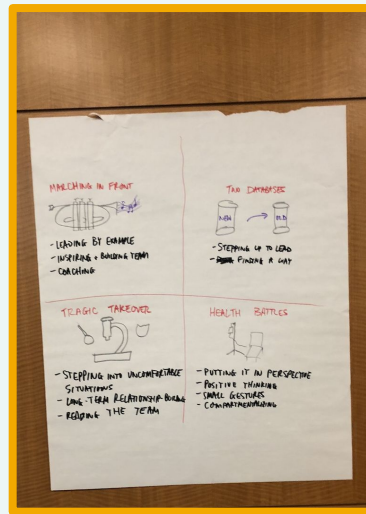 MARCHING IN FRONT
- LEADING BY EXAMPLE
- INSPIRING + BUILDING TEAM
- COACHING
TWO DATABASES
NEW
OLD
- STEPPING UP TO LEAD
- FINDING A WAY
TRAGIC TAKEOVER
- STEPPING INTO UNCOMFORTABLE
SITUATIONS
- LONG-TERM RELATIONSHIP
- READING THE TEAM
HEALTH BATTLES
- PUTTING IT IN PERSPECTIVE
- POSITIVE THINKING
- SMALL GESTURES
- COMPARTMENTALISING